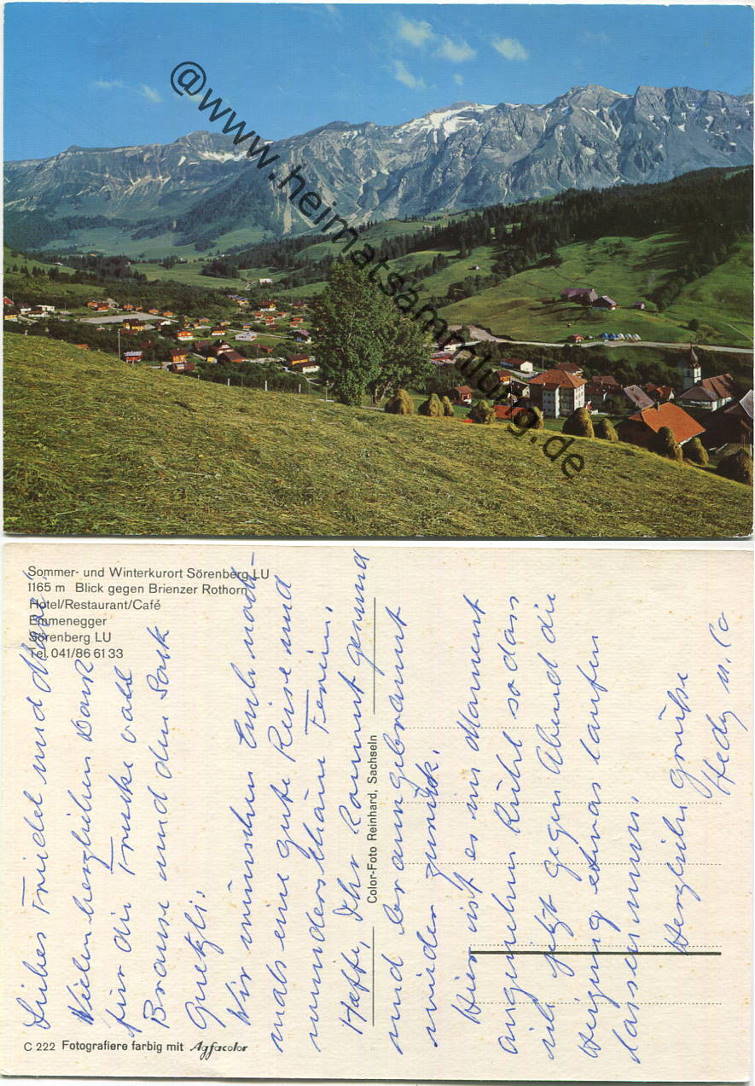 @www.heimatsammlung.de
Sommer- und Winterkurort Sörenberg LU
1165 m Blick gegen Brienzer Rothorn
Hotel/Restaurant/Café
Emmenegger
Sörenberg LU
Tel. 041/86 61 33
Liebes Friedel und
Vielen herzlichen Dank
für die Truske
Brause und den Sack
Guetzli.
Wir wünschen Euch noch-
mals eine gute Reise und
wunderschöne Ferien.
Hoffe, Ihr kommt gesund
und braungebrannt
wieder zurück.
Hier ist es im Moment
angenehm kühl sodass
ich jetzt gegen Abend die
Heizung etwas laufen
lassen muss.
Herzliche Grüsse
Hedy u. Co
Color-Foto Reinhard, Sachseln
C 222 Fotografiere farbig mit Agfacolor